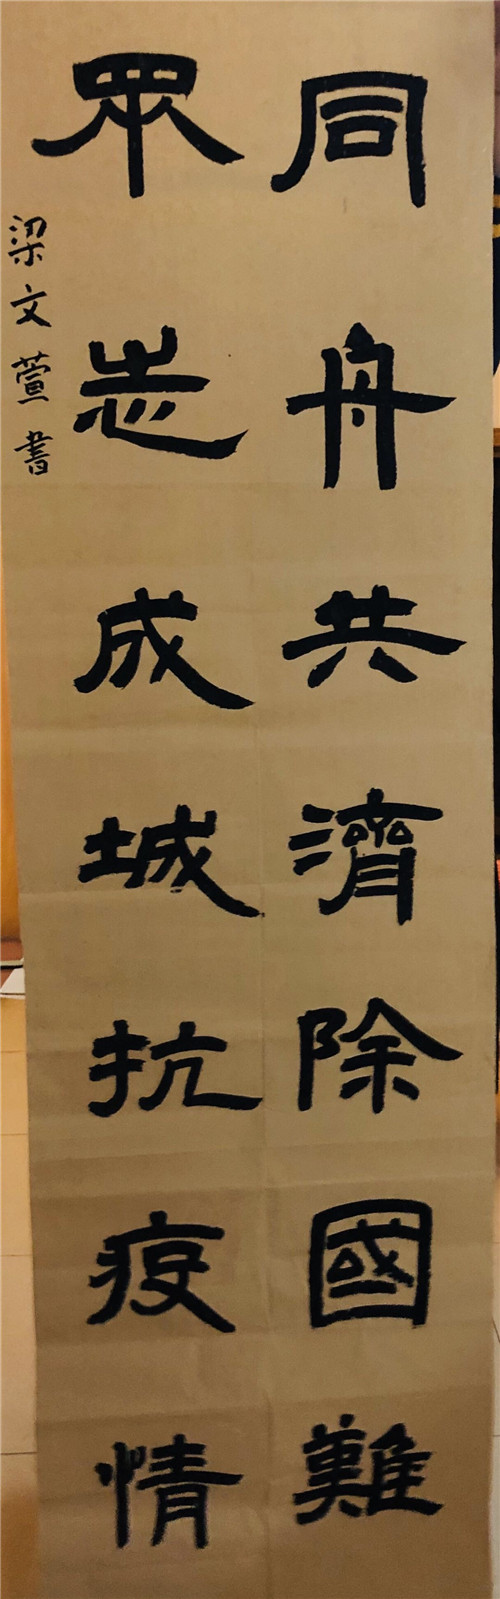 同舟共濟除國難
眾志成城抗疫情
梁文萱書